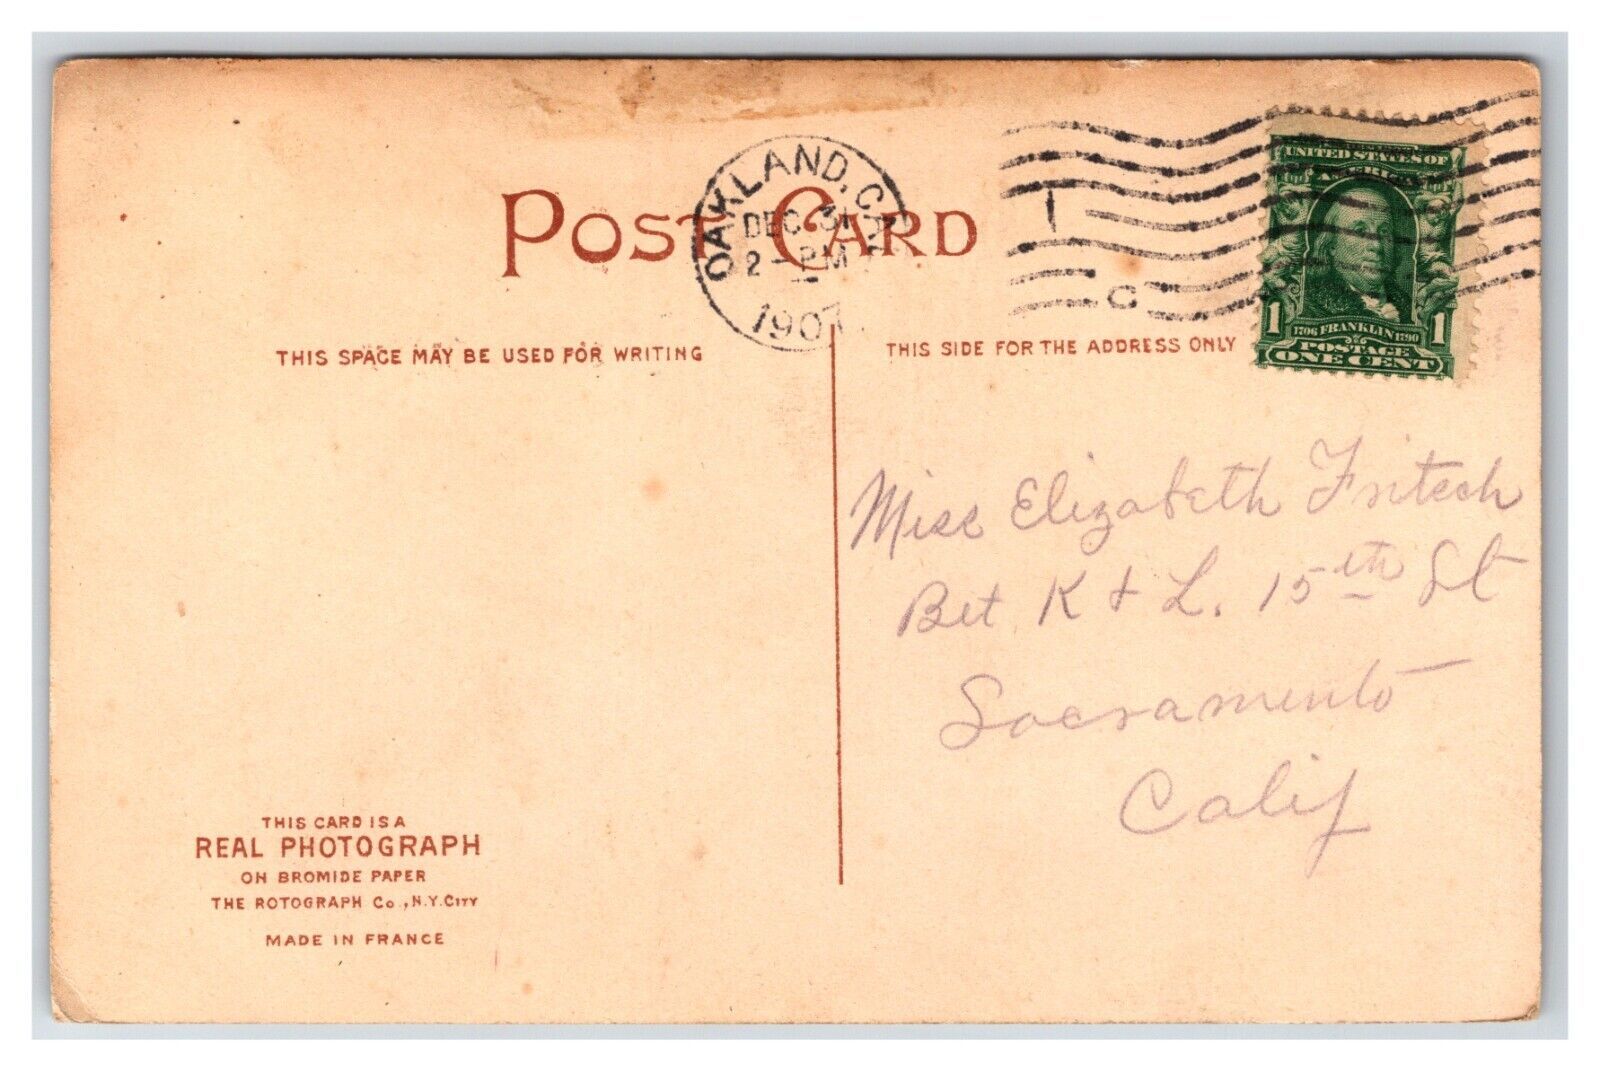 POST CARD
OAKLAND, CAL.
DEC 31
2 - PM
1907
1
C
UNITED STATES OF
AMERICA
1706 FRANKLIN 1790
1 POSTAGE 1
ONE CENT
THIS SPACE MAY BE USED FOR WRITING
THIS SIDE FOR THE ADDRESS ONLY
Miss Elizabeth Fritsch
Bet K & L. 15th St
Sacramento
Calif
THIS CARD IS A
REAL PHOTOGRAPH
ON BROMIDE PAPER
THE ROTOGRAPH Co., N.Y. CITY
MADE IN FRANCE